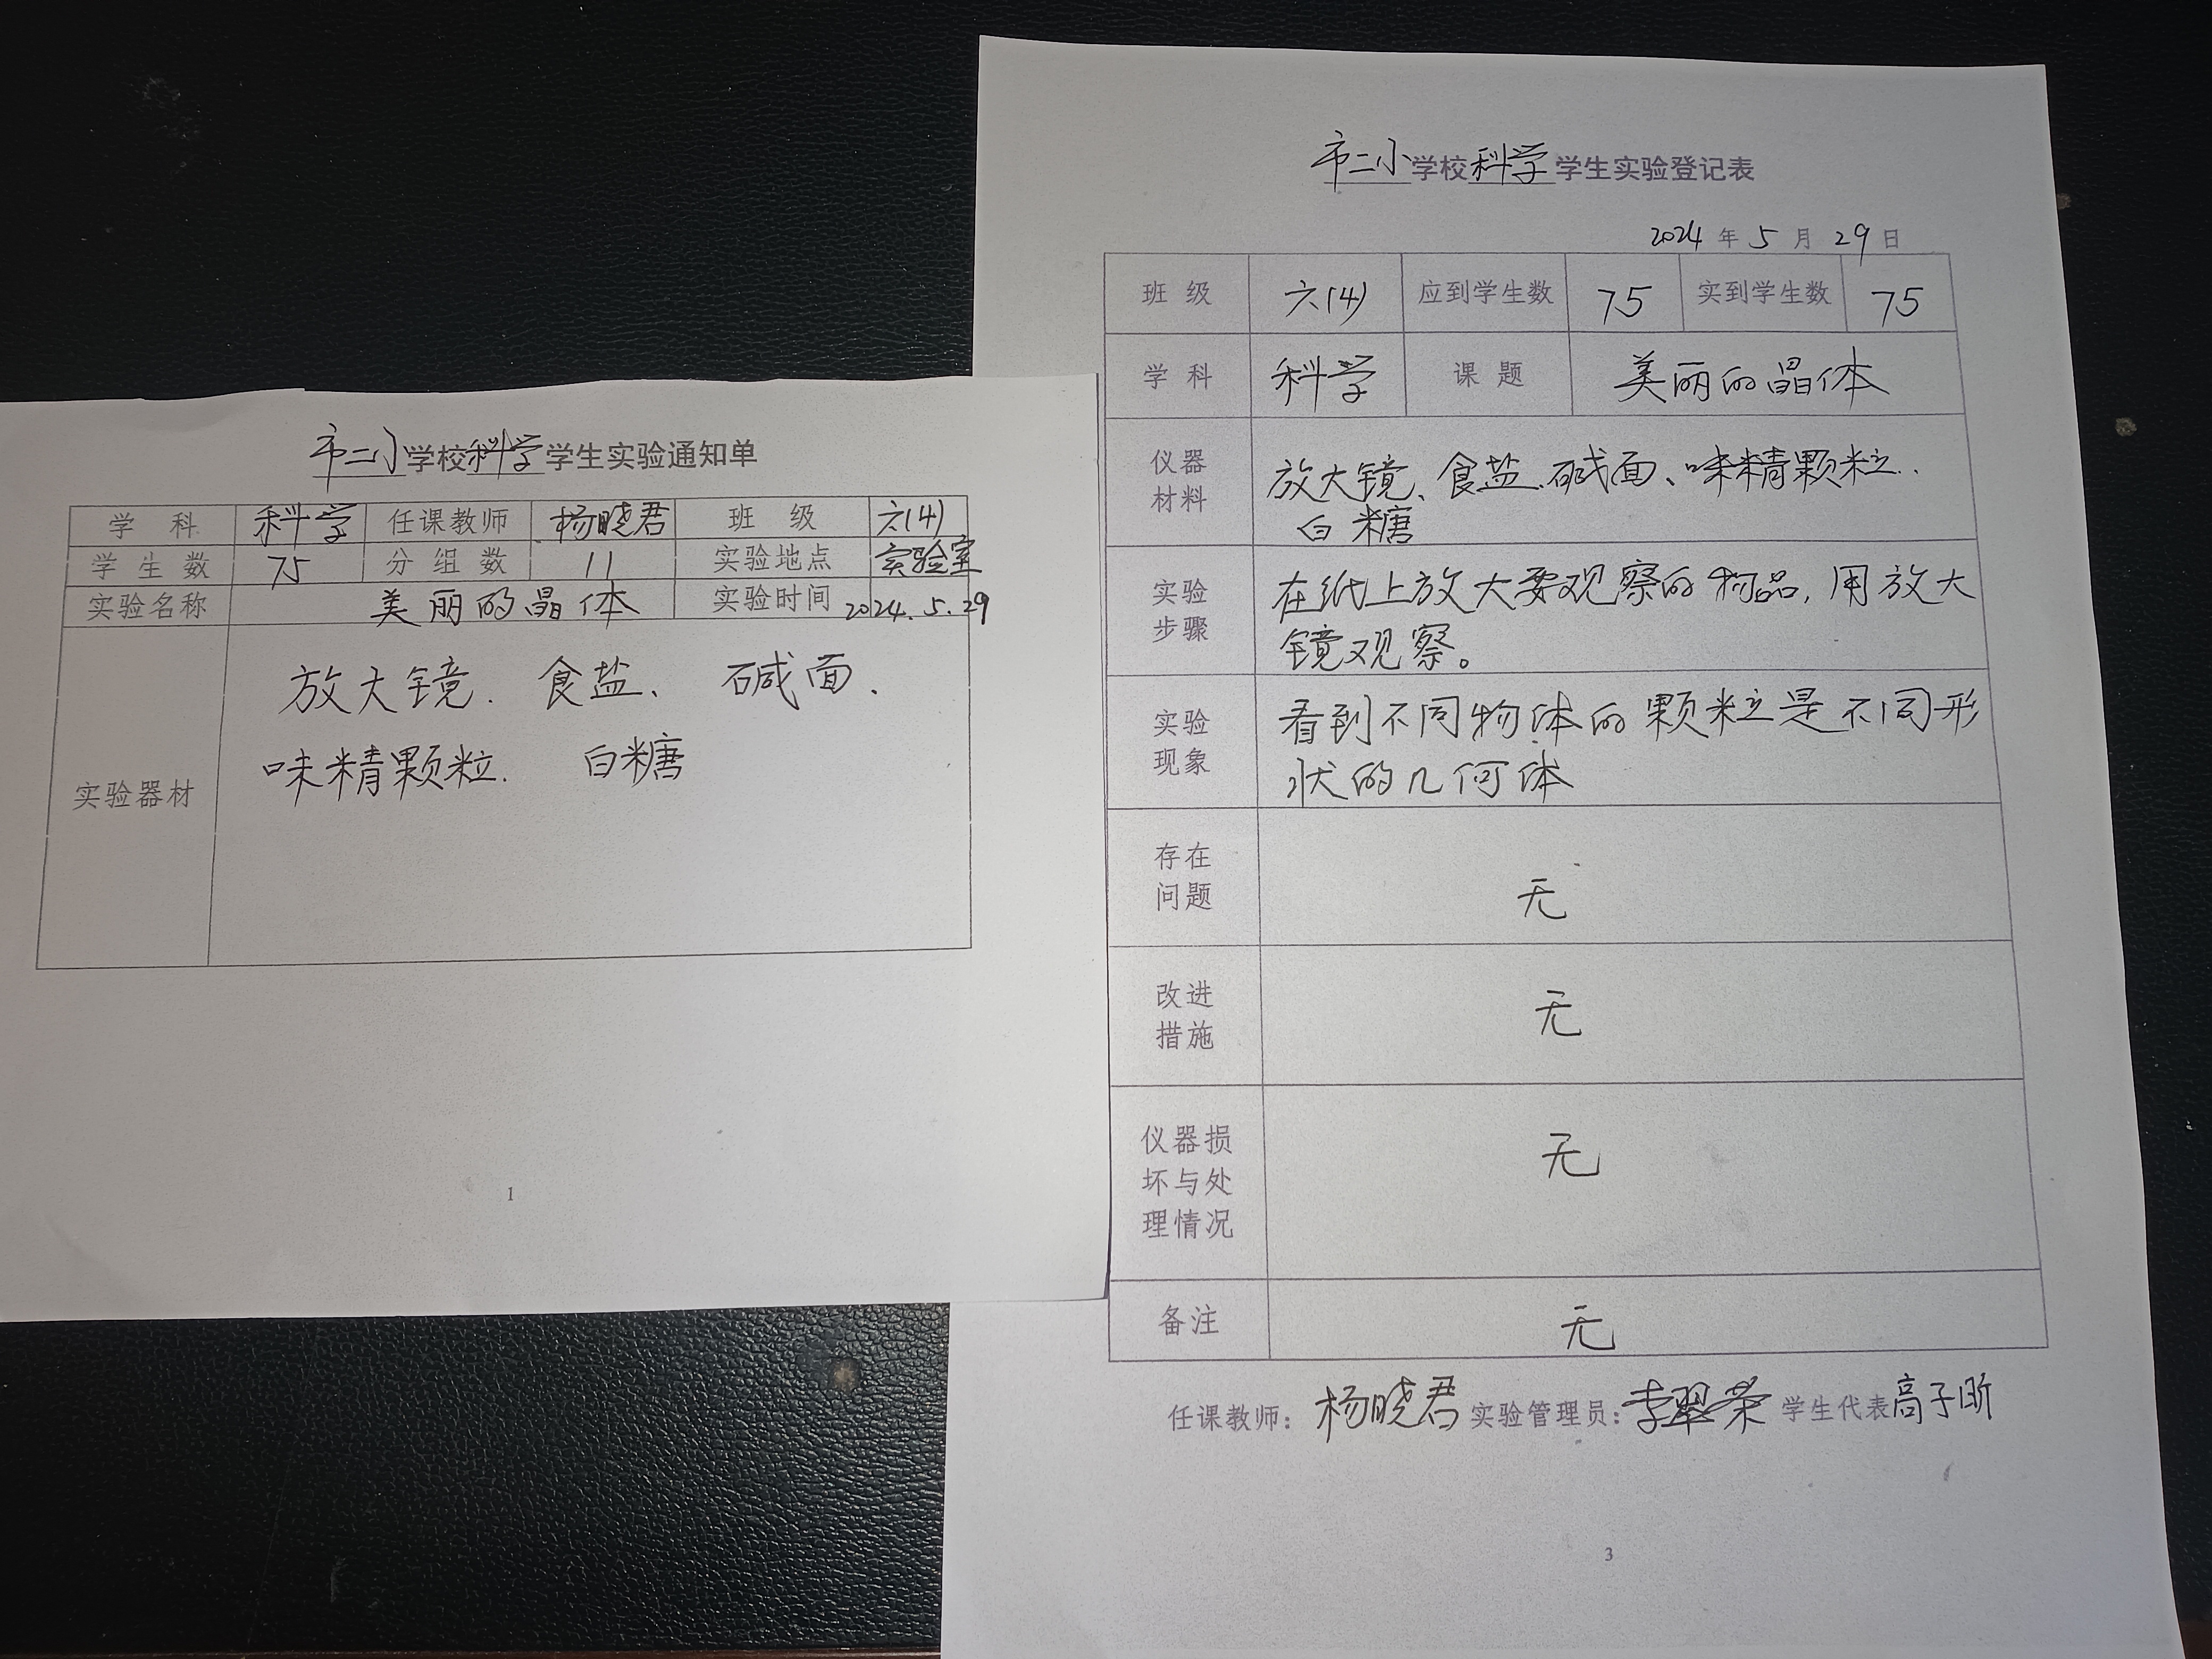 市二小学校科学学生实验通知单
学 科 科学 任课教师 杨晓君 班 级 六(4)
学 生 数 75 分 组 数 11 实验地点 实验室
实验名称 美丽的晶体 实验时间 2024.5.29
实验器材
放大镜. 食盐、 碱面.
味精颗粒. 白糖
1
市二小学校科学学生实验登记表
2024 年 5 月 29 日
班 级 六(4) 应到学生数 75 实到学生数 75
学 科 科学 课 题 美丽的晶体
仪器
材料
放大镜、食盐.碱面、味精颗粒..
白糖
实验
步骤
在纸上放大要观察的物品,用放大
镜观察。
实验
现象
看到不同物体的颗粒是不同形
状的几何体
存在
问题
无
改进
措施
无
仪器损
坏与处
理情况
无
备注 无
任课教师: 杨晓君 实验管理员: 李翠荣 学生代表 高子昕
3